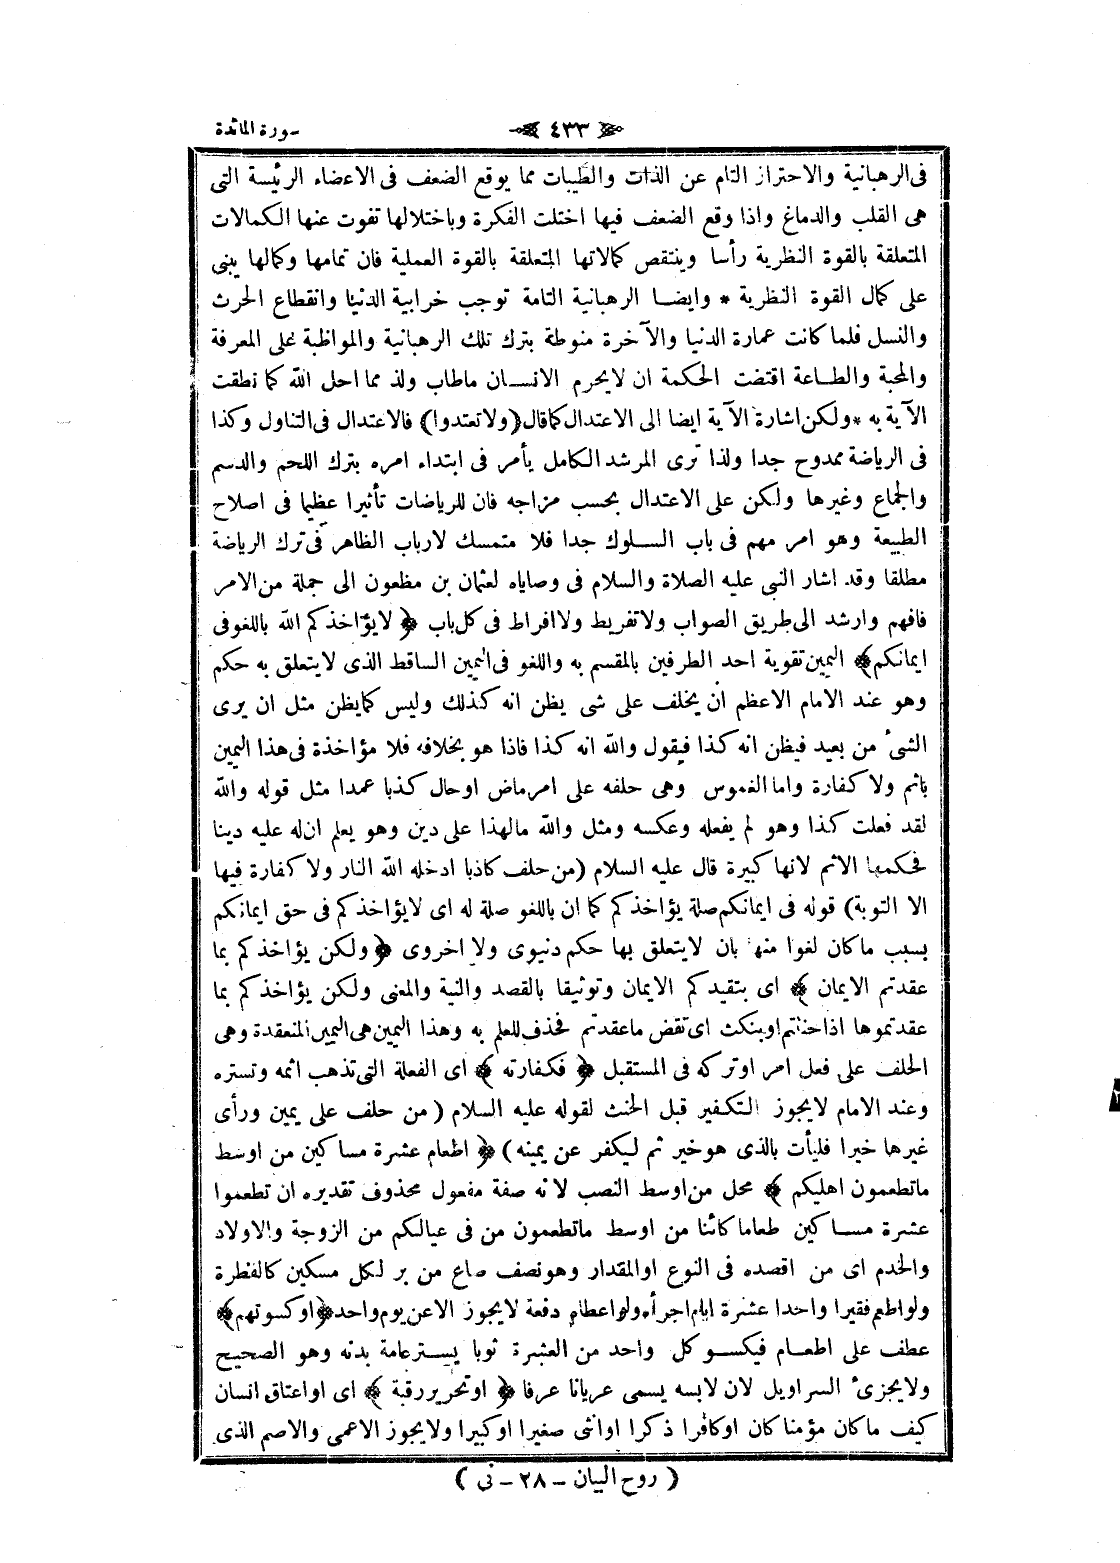 سورة المائدة
٤٣٣
فى الرهبانية والاحتراز التام عن الذات والطيبات مما يوقع الضعف فى الاعضاء الرئيسة التى
هى القلب والدماغ واذا وقع الضعف فيها اختلت الفكرة وباختلالها تفوت عنها الكمالات
المتعلقة بالقوة النظرية رأسا وينتقص كمالاتها المتعلقة بالقوة العملية فان تمامها وكمالها يبنى
على كمال القوة النظرية * وايضا الرهبانية التامة توجب خرابية الدنيا وانقطاع الحرث
والنسل فلما كانت عمارة الدنيا والآخرة منوطة بترك تلك الرهبانية والمواظبة على المعرفة
والمحبة والطاعة اقتضت الحكمة ان لايحرم الانسان ماطاب ولذ مما احل الله كما نطقت
الآية به * ولكن اشارة الآية ايضا الى الاعتدال كما قال (ولاتعتدوا) فالاعتدال فى التناول وكذا
فى الرياضة ممدوح جدا ولذا ترى المرشد الكامل يأمر فى ابتداء امره بترك اللحم والدسم
والجماع وغيرها ولكن على الاعتدال بحسب مزاجه فان للرياضات تأثيرا عظيما فى اصلاح
الطبيعة وهو امر مهم فى باب السلوك جدا فلا متمسك لارباب الظاهر فى ترك الرياضة
مطلقا وقد اشار النبى عليه الصلاة والسلام فى وصاياه لعثمان بن مظعون الى جملة من الامر
فافهم وارشد الى طريق الصواب ولاتفريط ولاافراط فى كل باب ﴿ لايؤاخذكم الله باللغو فى
ايمانكم ﴾ اليمين تقوية احد الطرفين بالمقسم به واللغو فى اليمين الساقط الذى لايتعلق به حكم
وهو عند الامام الاعظم ان يحلف على شى يظن انه كذلك وليس كمايظن مثل ان يرى
الشىء من بعيد فيظن انه كذا فيقول والله انه كذا فاذا هو بخلافه فلا مؤاخذة فى هذا اليمين
باثم ولا كفارة واما الغموس وهى حلفه على امر ماض اوحال كذبا عمدا مثل قوله والله
لقد فعلت كذا وهو لم يفعله وعكسه ومثل والله مالهذا على دين وهو يعلم ان له عليه دينا
فحكمها الاثم لانها كبيرة قال عليه السلام (من حلف كاذبا ادخله الله النار ولا كفارة فيها
الا التوبة) قوله فى ايمانكم صلة يؤاخذكم كما ان باللغو صلة له اى لايؤاخذكم فى حق ايمانكم
بسبب ماكان لغوا منها بان لايتعلق بها حكم دنيوى ولا اخروى ﴿ ولكن يؤاخذكم بما
عقدتم الايمان ﴾ اى بتقيدكم الايمان وتوثيقا بالقصد والنية والمعنى ولكن يؤاخذكم بما
عقدتموها اذا حنثتم اوبنكث اى نقض ماعقدتم فحذف للعلم به وهذا اليمين هى اليمين المنعقدة وهى
الحلف على فعل امر اوتركه فى المستقبل ﴿ فكفارته ﴾ اى الفعلة التى تذهب اثمه وتستره
وعند الامام لايجوز التكفير قبل الحنث لقوله عليه السلام (من حلف على يمين ورأى
غيرها خيرا فليأت بالذى هو خير ثم ليكفر عن يمينه) ﴿ اطعام عشرة مساكين من اوسط
ماتطعمون اهليكم ﴾ محل من اوسط النصب لانه صفة مفعول محذوف تقديره ان تطعموا
عشرة مساكين طعاما كائنا من اوسط ماتطعمون من فى عيالكم من الزوجة والاولاد
والخدم اى من اقصده فى النوع اوالمقدار وهو نصف صاع من بر لكل مسكين كالفطرة
ولو اطعم فقيرا واحدا عشرة ايام اجرأه ولو اعطاه دفعة لايجوز الا عن يوم واحد ﴿ اوكسوتهم ﴾
عطف على اطعام فيكسو كل واحد من العشرة ثوبا يستر عامة بدنه وهو الصحيح
ولايجزىء السراويل لان لابسه يسمى عريانا عرفا ﴿ اوتحرير رقبة ﴾ اى اواعتاق انسان
كيف ماكان مؤمنا كان اوكافرا ذكرا اوانثى صغيرا اوكبيرا ولايجوز الاعمى والاصم الذى
( روح البيان - ٢٨ - نى )